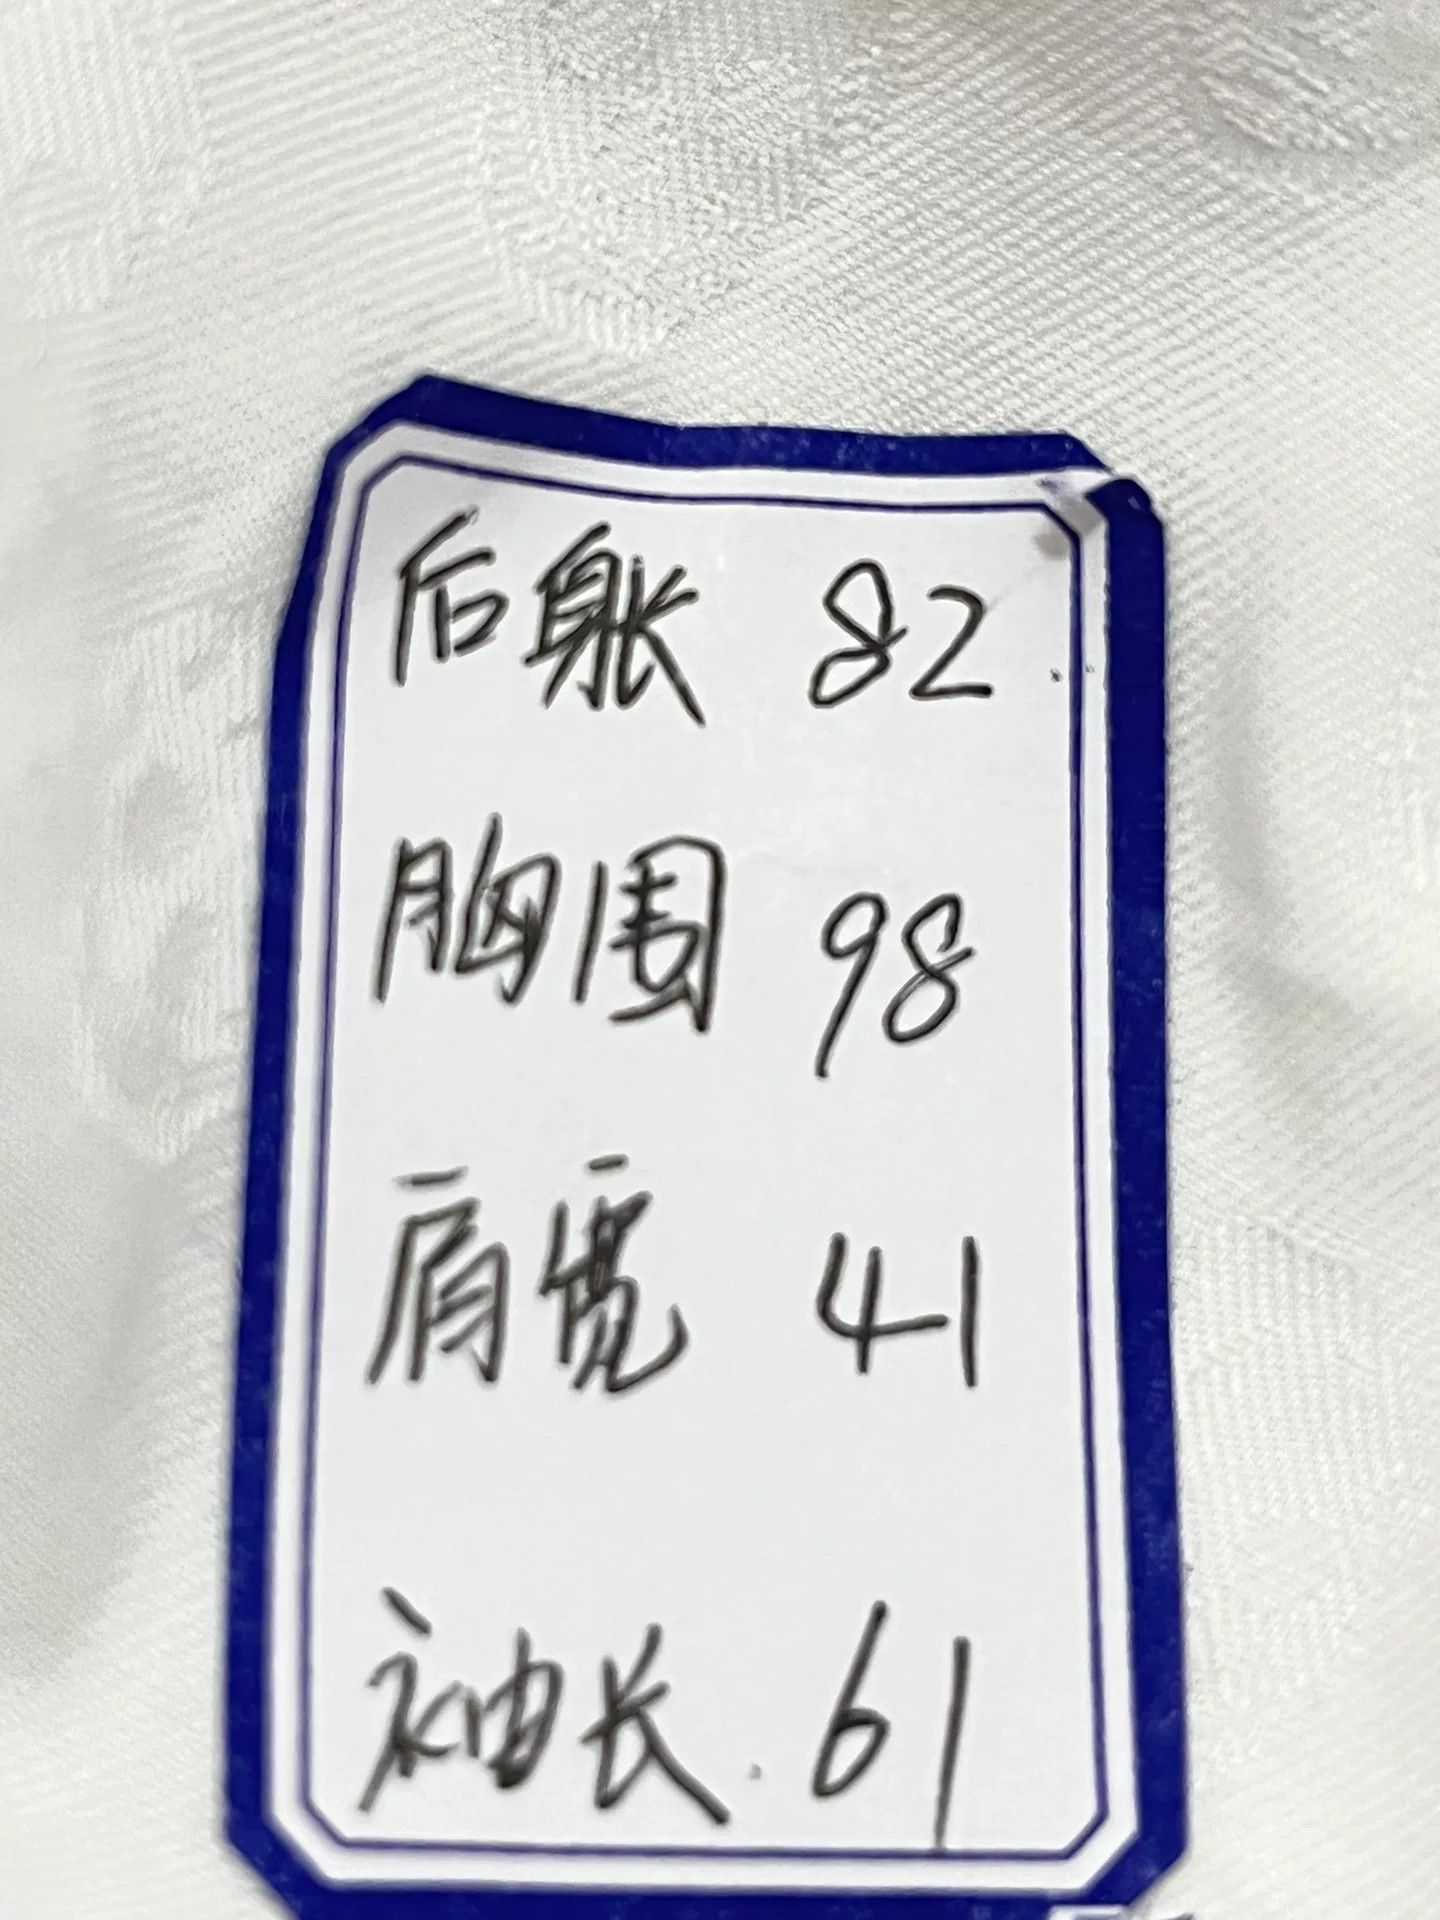 后身长 82
胸围 98
肩宽 41
袖长 61